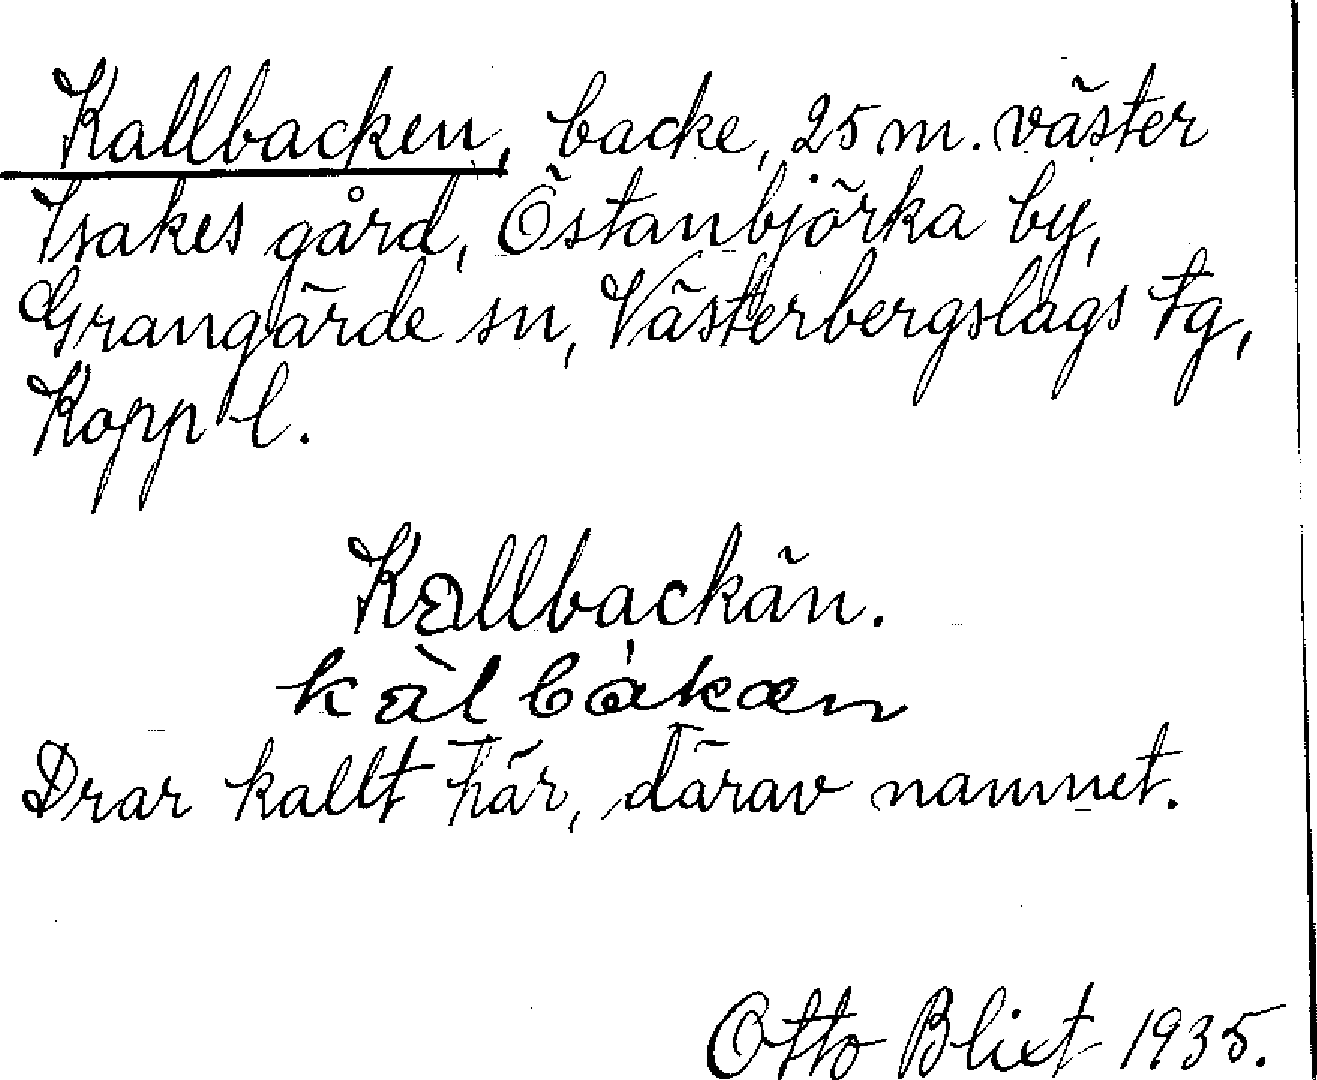 Kallbacken, backe, 25 m. väster
Isakes gård, Östanbjörka by,
Grangärde sn, Västerbergslags tg,
Kopp l.
Kallbackän.
kàlbákæn
Drar kallt här, därav namnet.
Otto Blixt 1935.